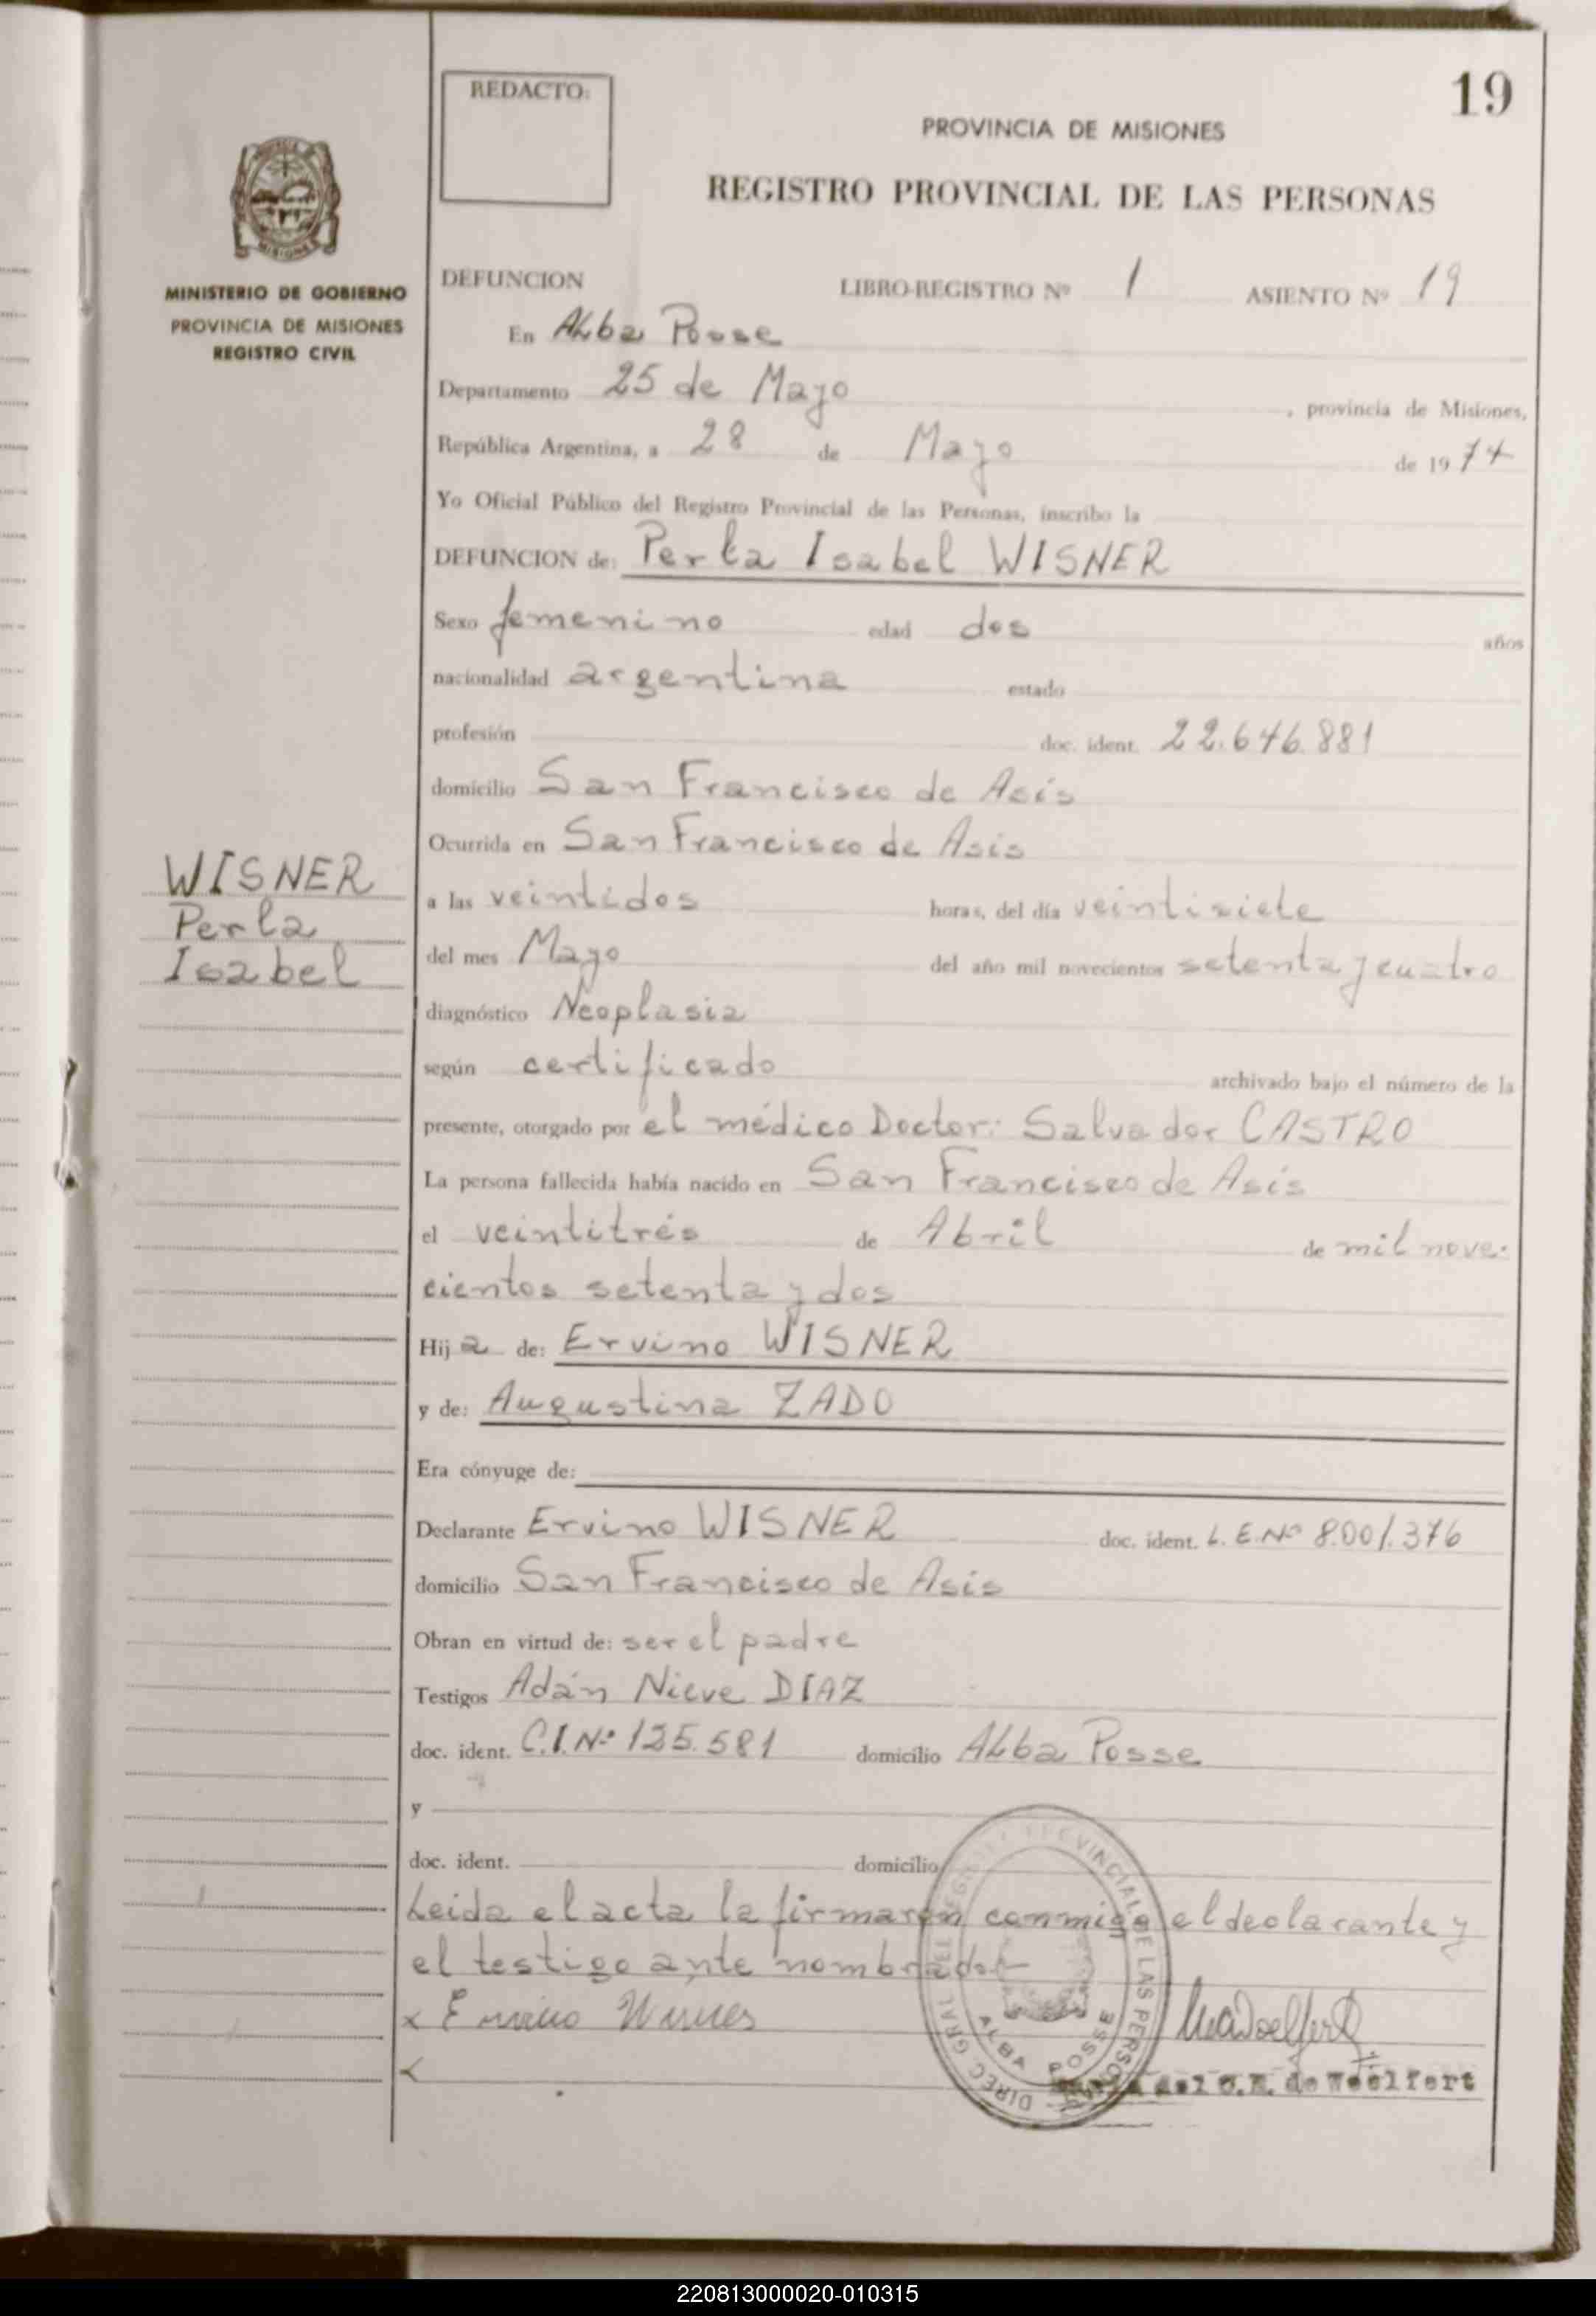 19
REDACTO:
PROVINCIA DE MISIONES
REGISTRO PROVINCIAL DE LAS PERSONAS
MINISTERIO DE GOBIERNO
PROVINCIA DE MISIONES
REGISTRO CIVIL
DEFUNCION LIBRO-REGISTRO Nº 1 ASIENTO Nº 19
En Alba Posse
Departamento 25 de Mayo , provincia de Misiones,
República Argentina, a 28 de Mayo de 19 74
Yo Oficial Público del Registro Provincial de las Personas, inscribo la
DEFUNCION de: Perla Isabel WISNER
Sexo femenino edad dos años
nacionalidad argentina estado
profesión doc. ident. 22.646.881
domicilio San Francisco de Asís
Ocurrida en San Francisco de Asis
WISNER
Perla
Isabel
a las veintidos horas, del día veintisiete
del mes Mayo del año mil novecientos setenta y cuatro
diagnóstico Neoplasia
según certificado archivado bajo el número de la
presente, otorgado por el médico Doctor: Salvador CASTRO
La persona fallecida había nacido en San Francisco de Asís
el veintitrés de Abril de mil nove-
cientos setenta y dos
Hija de: Ervino WISNER
y de: Augustina ZADO
Era cónyuge de:
Declarante Ervino WISNER doc. ident. L.E.Nº 8.001.376
domicilio San Francisco de Asís
Obran en virtud de: ser el padre
Testigos Adán Nieve DIAZ
doc. ident. C.I.Nº 125.581 domicilio Alba Posse
y
doc. ident. domicilio
Leida el acta la firmaron conmigo el declarante y
el testigo ante nombrado.-
x
DIREC. GRAL. DEL REGISTRO PROVINCIAL DE LAS PERSONAS
ALBA POSSE
de Woelfert
220813000020-010315